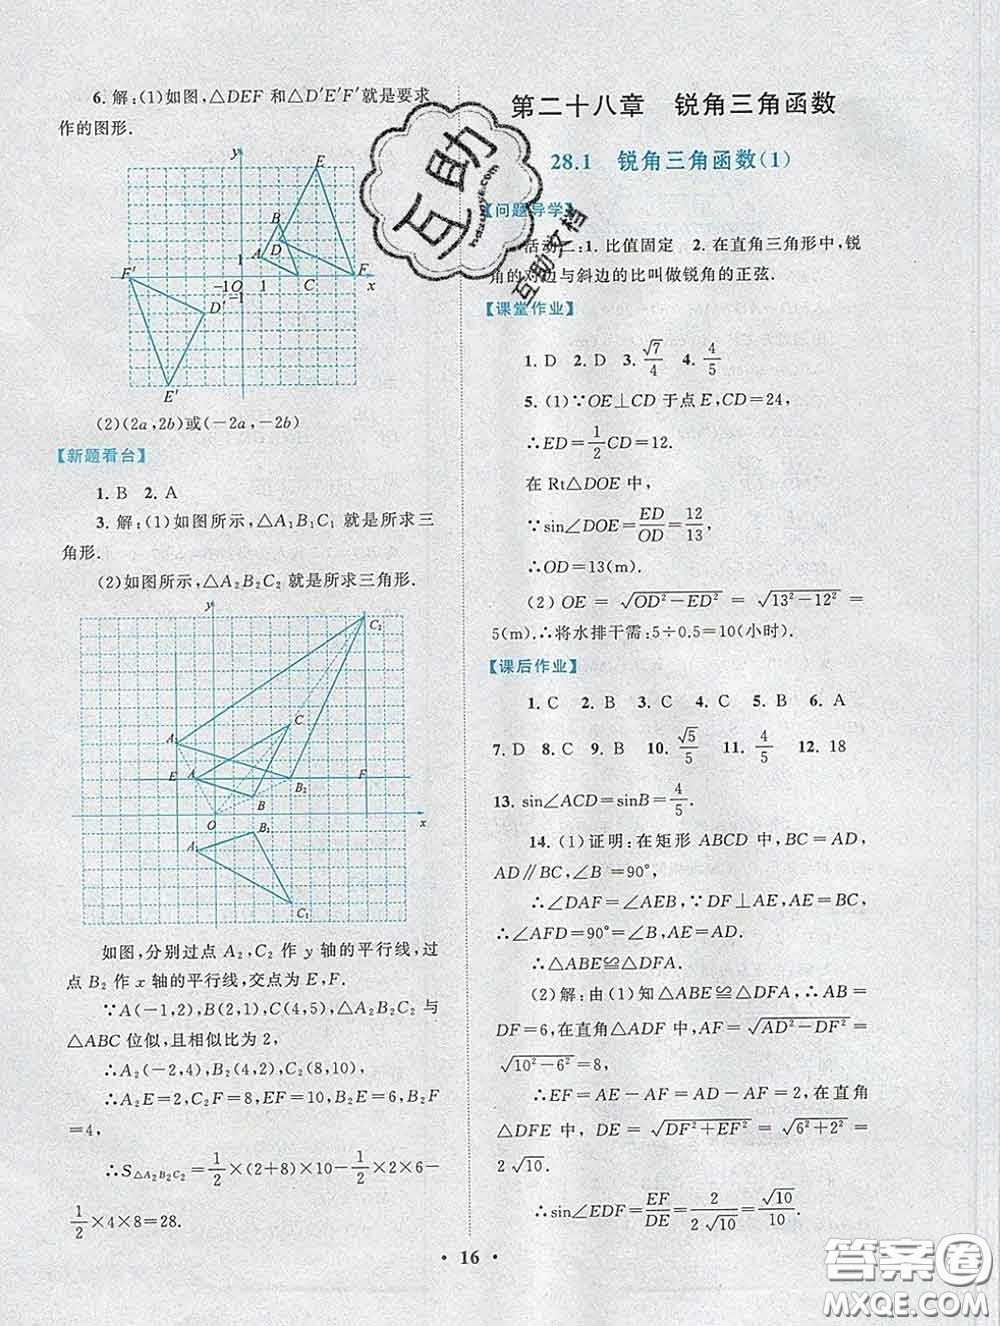 6. 解:(1)如图,△DEF 和△D′E′F′就是要求
作的图形.
y
E
B
A
D
1
F′
-1O
1
C
F
x
-1
D′
E′
(2)(2a,2b)或(-2a,-2b)
【新题看台】
1. B  2. A
3. 解:(1)如图所示,△A₁B₁C₁ 就是所求三
角形.
(2)如图所示,△A₂B₂C₂ 就是所求三角形.
y
C₂
C
A₂
E
A
B₂
F
B
O
x
B₁
A₁
C₁
如图,分别过点 A₂,C₂ 作 y 轴的平行线,过
点 B₂ 作 x 轴的平行线,交点为 E,F.
∵A(-1,2),B(2,1),C(4,5),△A₂B₂C₂ 与
△ABC 位似,且相似比为 2,
∴A₂(-2,4),B₂(4,2),C₂(8,10),
∴A₂E=2,C₂F=8,EF=10,B₂E=6,B₂F
=4,
∴S△A₂B₂C₂ = 1/2×(2+8)×10-1/2×2×6-
1/2×4×8=28.
第二十八章 锐角三角函数
28.1 锐角三角函数(1)
【问题导学】
活动二:1. 比值固定  2. 在直角三角形中,锐
角的对边与斜边的比叫做锐角的正弦.
【课堂作业】
1. D  2. D  3. √7/4  4. 4/5
5. (1)∵OE⊥CD 于点 E,CD=24,
∴ED=1/2CD=12.
在 Rt△DOE 中,
∵sin∠DOE=ED/OD=12/13,
∴OD=13(m).
(2) OE = √(OD²-ED²) = √(13²-12²) =
5(m).∴将水排干需:5÷0.5=10(小时).
【课后作业】
1. C  2. B  3. B  4. C  5. B  6. A
7. D  8. C  9. B  10. √5/5  11. 4/5  12. 18
13. sin∠ACD=sinB=4/5.
14. (1)证明:在矩形 ABCD 中,BC=AD,
AD∥BC,∠B=90°,
∴∠DAF=∠AEB,∵DF⊥AE,AE=BC,
∴∠AFD=90°=∠B,AE=AD.
∴△ABE≌△DFA.
(2)解:由(1)知△ABE≌△DFA,∴AB=
DF=6,在直角△ADF 中,AF=√(AD²-DF²)=
√(10²-6²)=8,
∴EF=AE-AF=AD-AF=2,在直角
△DFE 中,DE = √(DF²+EF²) = √(6²+2²) =
2√10.
∴sin∠EDF=EF/DE=2/(2√10)=√10/10.
• 16 •
互助
互助文档
答案圈
MXQE.COM